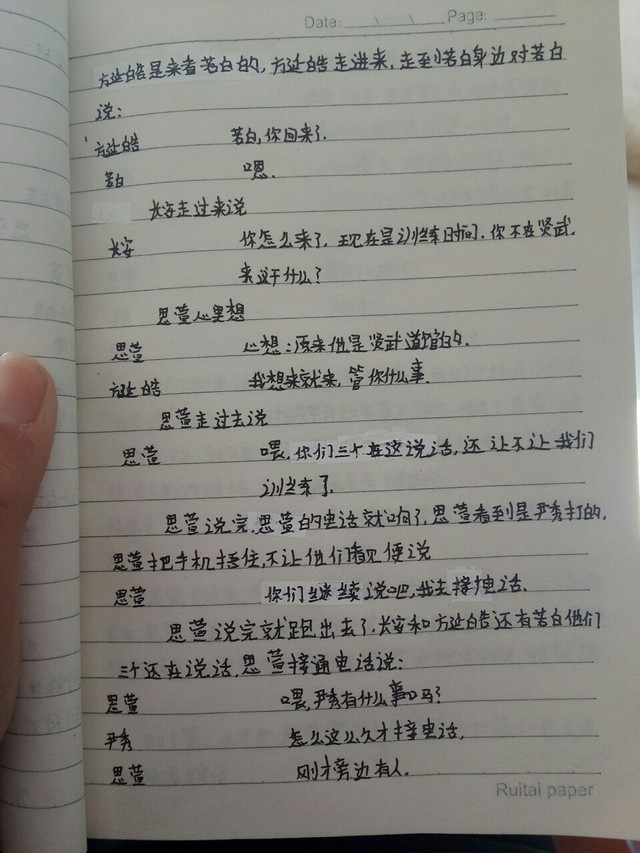 Date: Page:
方延皓是来看若白的,方延皓走进来,走到若白身边对若白
说:
方廷皓 若白,你回来了.
若白 嗯.
长安走过来说
长安 你怎么来了,现在是训练时间.你不在贤武.
来这干什么?
思萱心里想
思萱 心想:原来他是贤武道馆的.
方廷皓 我想来就来,管你什么事.
思萱走过去说
思萱 喂,你们三个在这说话,还让不让我们
训练了.
思萱说完.思萱的电话就响了.思萱看到是尹秀打的.
思萱把手机捂住,不让他们看见便说
思萱 你们继续说吧,我去接电话.
思萱说完就跑出去了.长安和方廷皓还有若白他们
三个还在说话,思萱接通电话说:
思萱 喂,尹秀有什么事吗?
尹秀 怎么这么久才接电话,
思萱 刚才旁边有人.
Ruitai paper